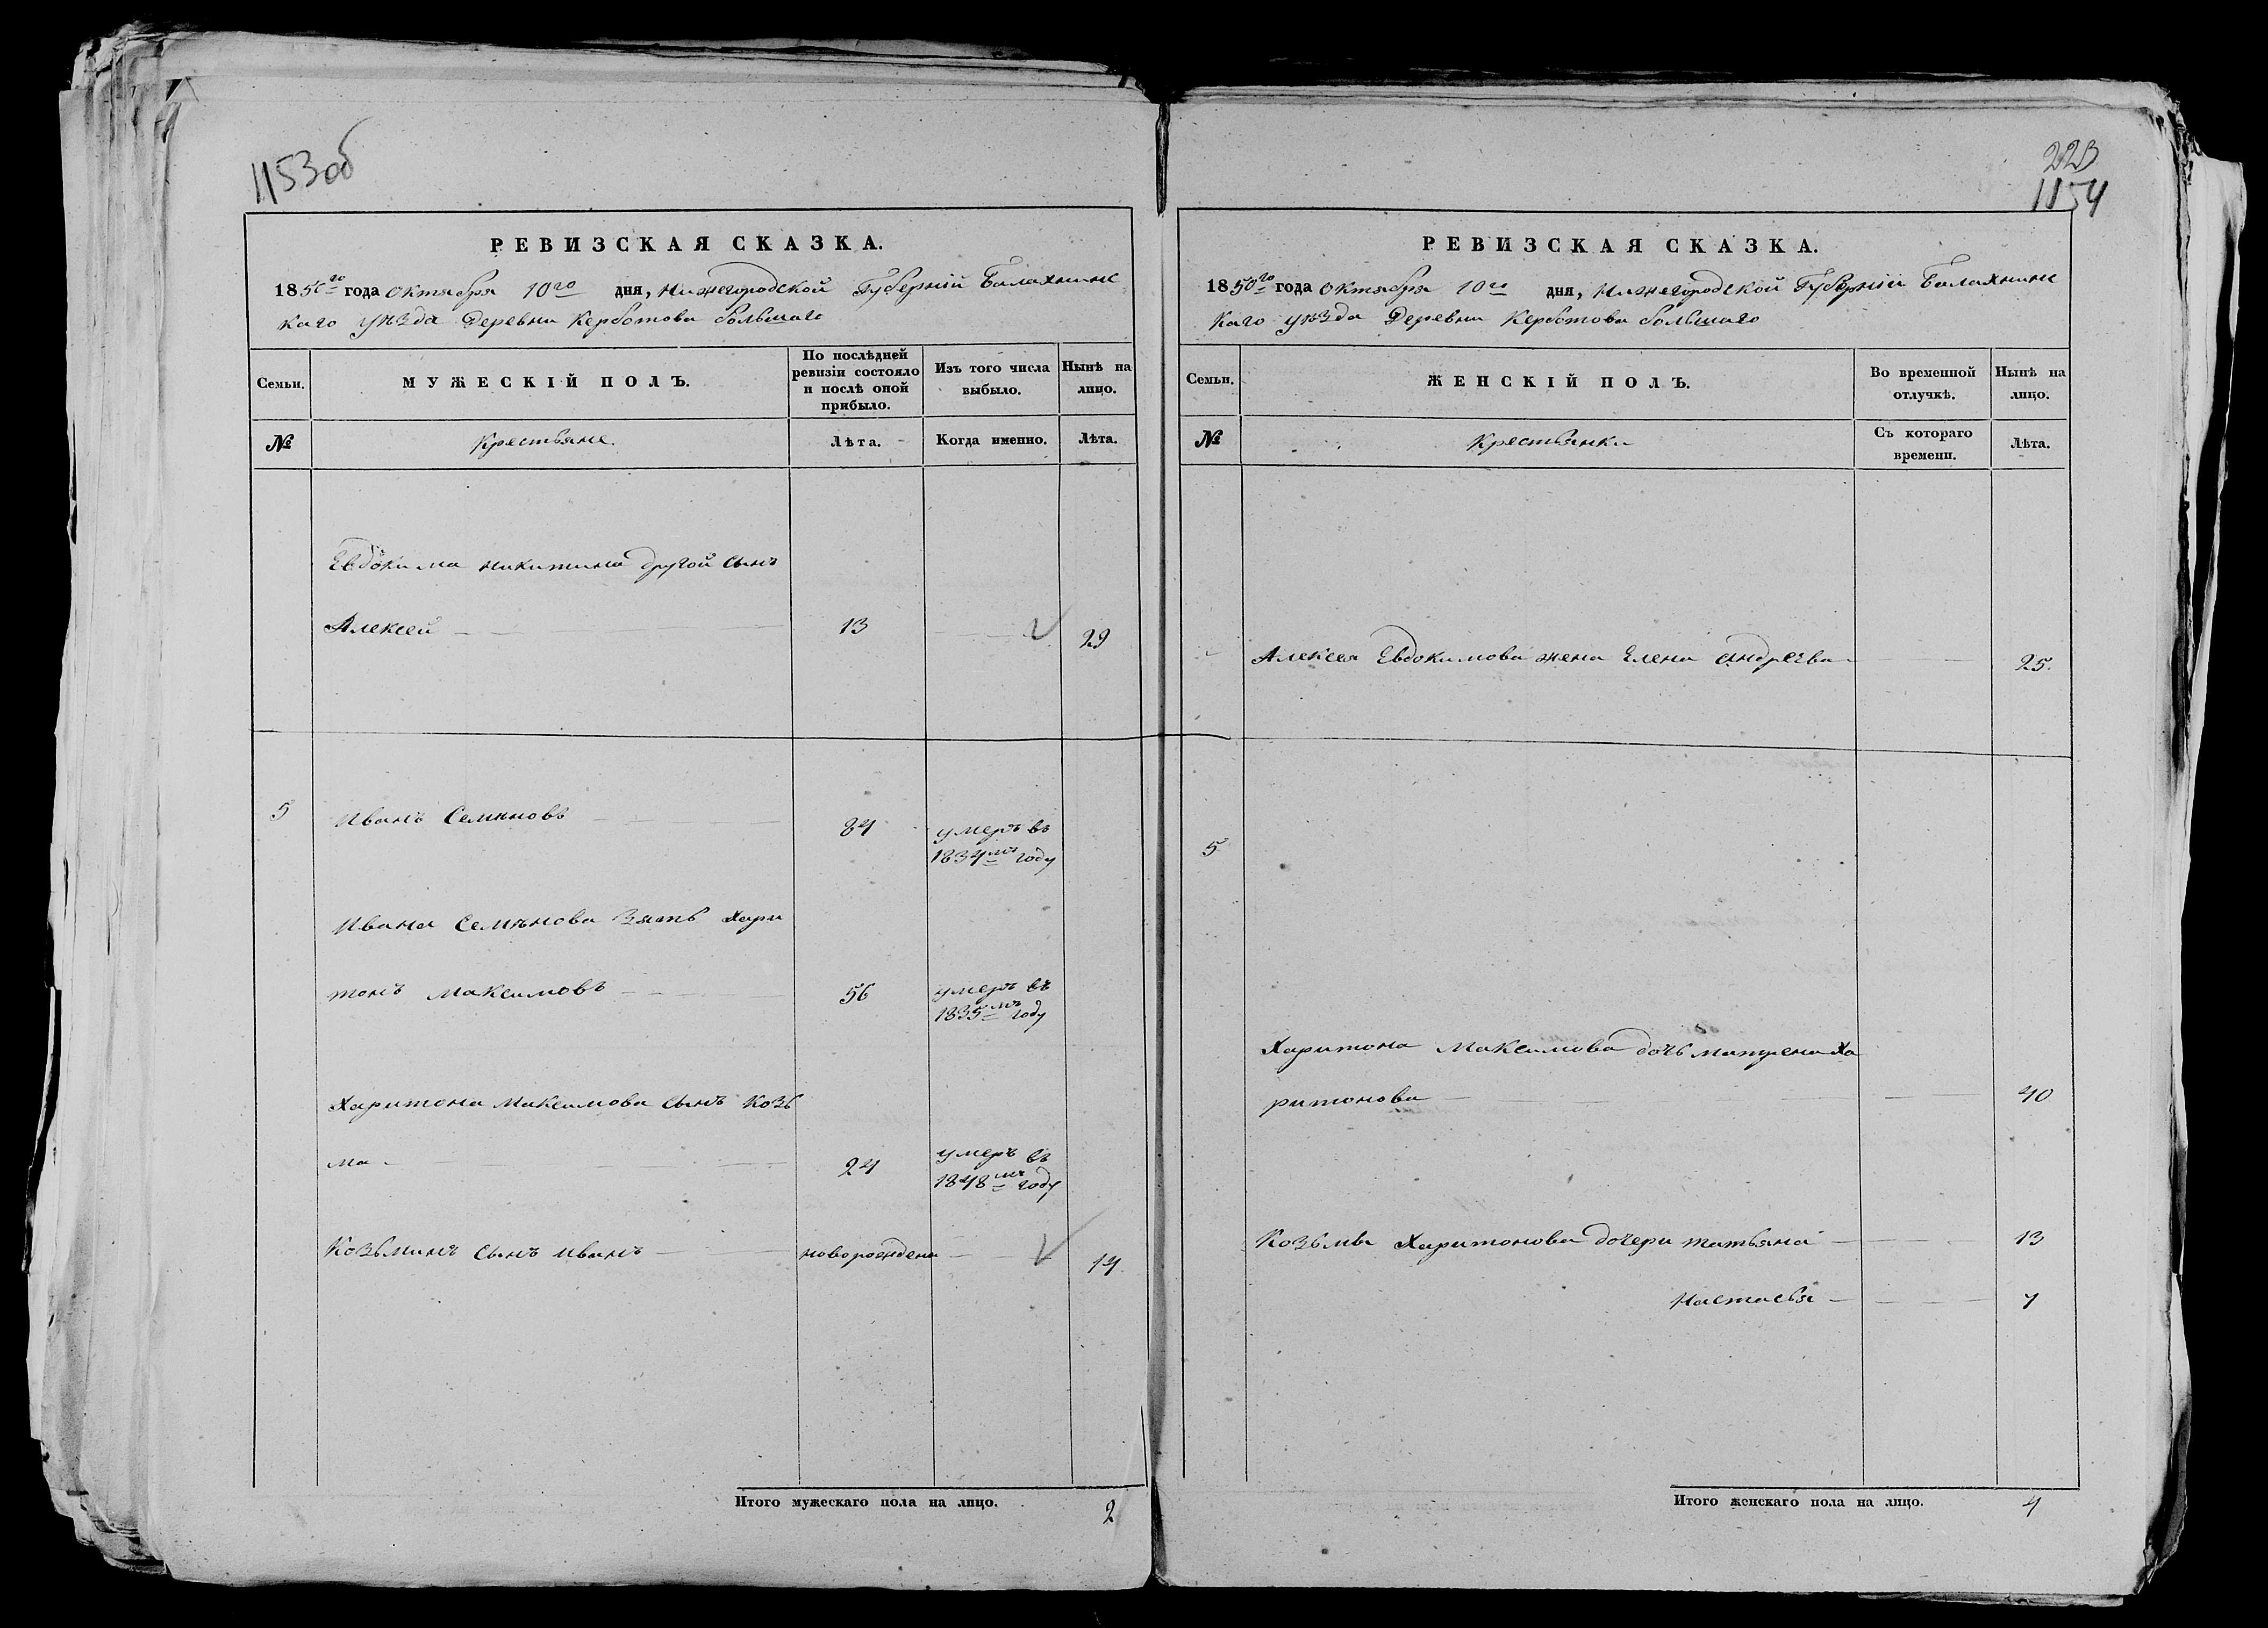 1153об
РЕВИЗСКАЯ СКАЗКА.
1850го года октября 10го дня, Нижегородской Губернiи Балахнинс
каго уѣзда Деревни Керботова большаго
Семьи.
МУЖЕСКІЙ ПОЛЪ.
По послѣдней
ревизіи состояло
и послѣ оной
прибыло.
Изъ того числа
выбыло.
Нынѣ на
лицо.
№
Крестьяне.
Лѣта.
Когда именно.
Лѣта.
Евдокима никитина другой сынъ
Алексей 13 29
5 Иванъ Семѣновъ 84 умеръ въ
1834мъ году
Ивана Семѣнова Зять Хари
тонъ Максимовъ 56 умеръ въ
1835мъ году
Харитона Максимова сынъ Козь
ма 24 умеръ въ
1848мъ году
Козьминъ сынъ иванъ новорожденъ 14
Итого мужескаго пола на лицо. 2
223
1154
РЕВИЗСКАЯ СКАЗКА.
1850го года октября 10го дня, Нижегородской Губернiи Балахнинс
каго уѣзда Деревни Керботова большаго
Семьи.
ЖЕНСКІЙ ПОЛЪ.
Во временной
отлучкѣ.
Нынѣ на
лицо.
№
Крестьянки
Съ котораго
времени.
Лѣта.
Алексея Евдокимова жена Елена андреева 25.
5
Харитона Максимова дочь матрена Ха
ритонова 40
Козьмы Харитонова дочери татьяна 13
Настасья 7
Итого женскаго пола на лицо. 4